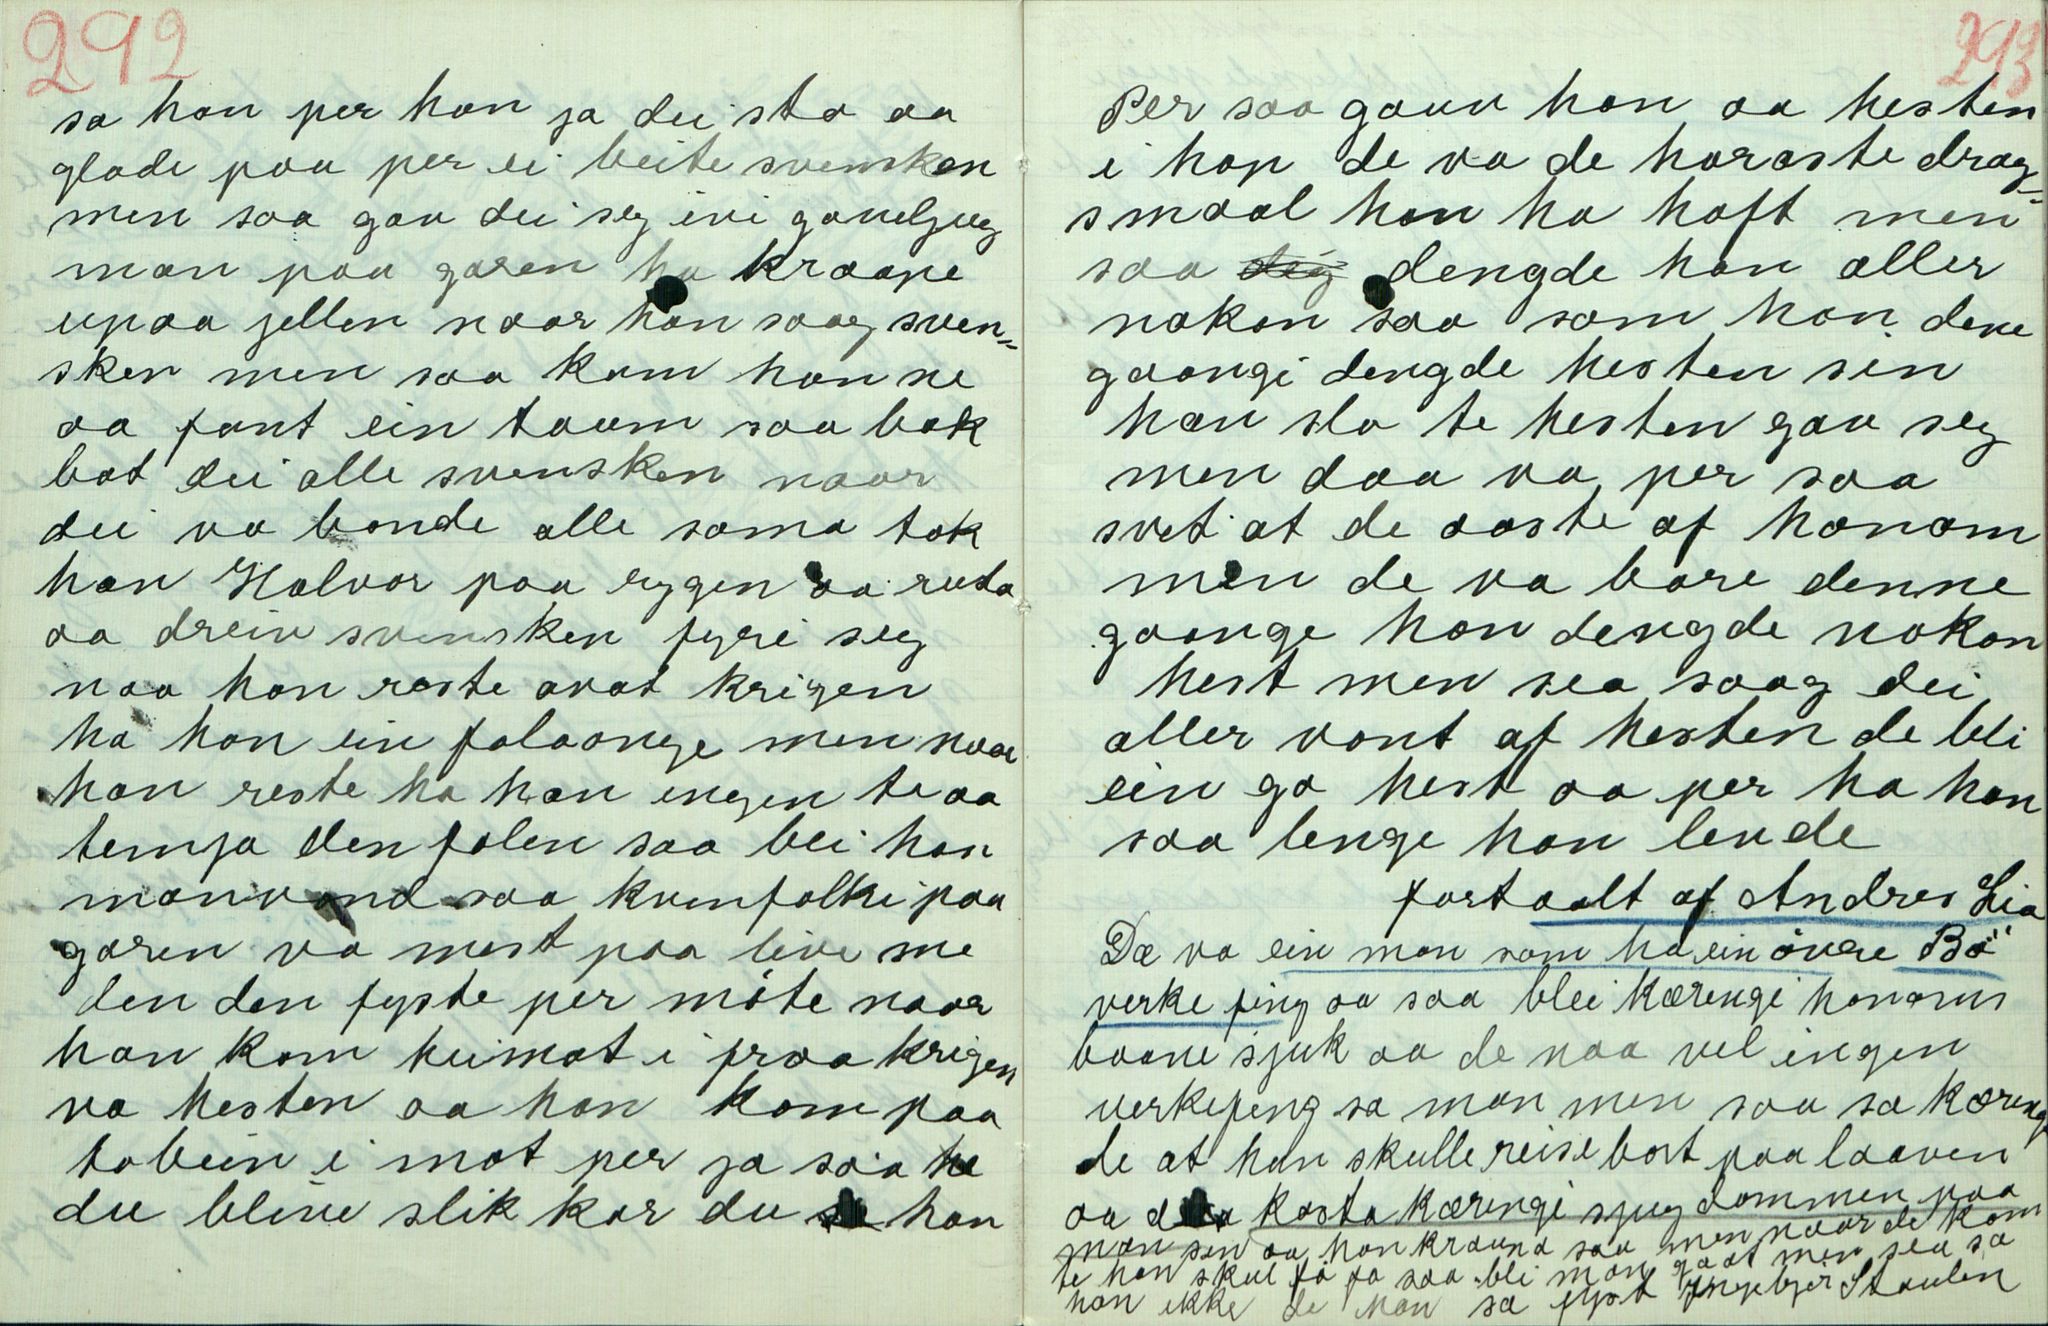 292
sa han per han ja dei sto aa
glade paa per ei beite svensken
men saa gav dei seg ivi gamelgug
man paa garen ha kraape
upaa jellen naar han saag sven=
sken men saa kam han ne
aa fant ein taum saa bak
bat dei alle svensken naar
dei va bonde alle sama tok
han Halvor paa rygen aa rusla
aa dreiv svensken fyri seg
naa han reste avat krigen
ha han ein folaange men naar
han reste ha han engen te aa
temja den folen saa blei han
manvond saa kvinfolki paa
garen va mest paa live me
den den fyste per möte naar
han kom heimat i fraa krigen
va hesten aa han kom paa
tobein i mot per ja saa he
du blive slik kar du han
293
Per saa gauv han aa hesten
i hop de va de haraste drag=
smaal han ha haft men
saa dengde han aller
nokon saa som han dene
gaangi dengde hesten sin
han slo te hesten gav seg
men daa va per saa
svet at de aaste af honom
men de va bare denne
gaange han dengde nokon
hest men sea saag dei
aller vont af hesten de bli
ein go hest aa per ha han
saa lenge han levde
fortaalt af Andres Lia
De va ein man som ha ein övre Bö
verke fing aa saa blei kærengi honoms
baane sjuk aa de naa vel ingen
verkefeng sa man men saa sa kæreng
de at han skulle reise bort paa laaven
aa kasta kærengi sjugdommen paa
man sin aa han kraund saa men naar de kom
te han skul fö fo saa bli man gaat men sea sa
han ikke de han sa fyst Ingebjør Staulen